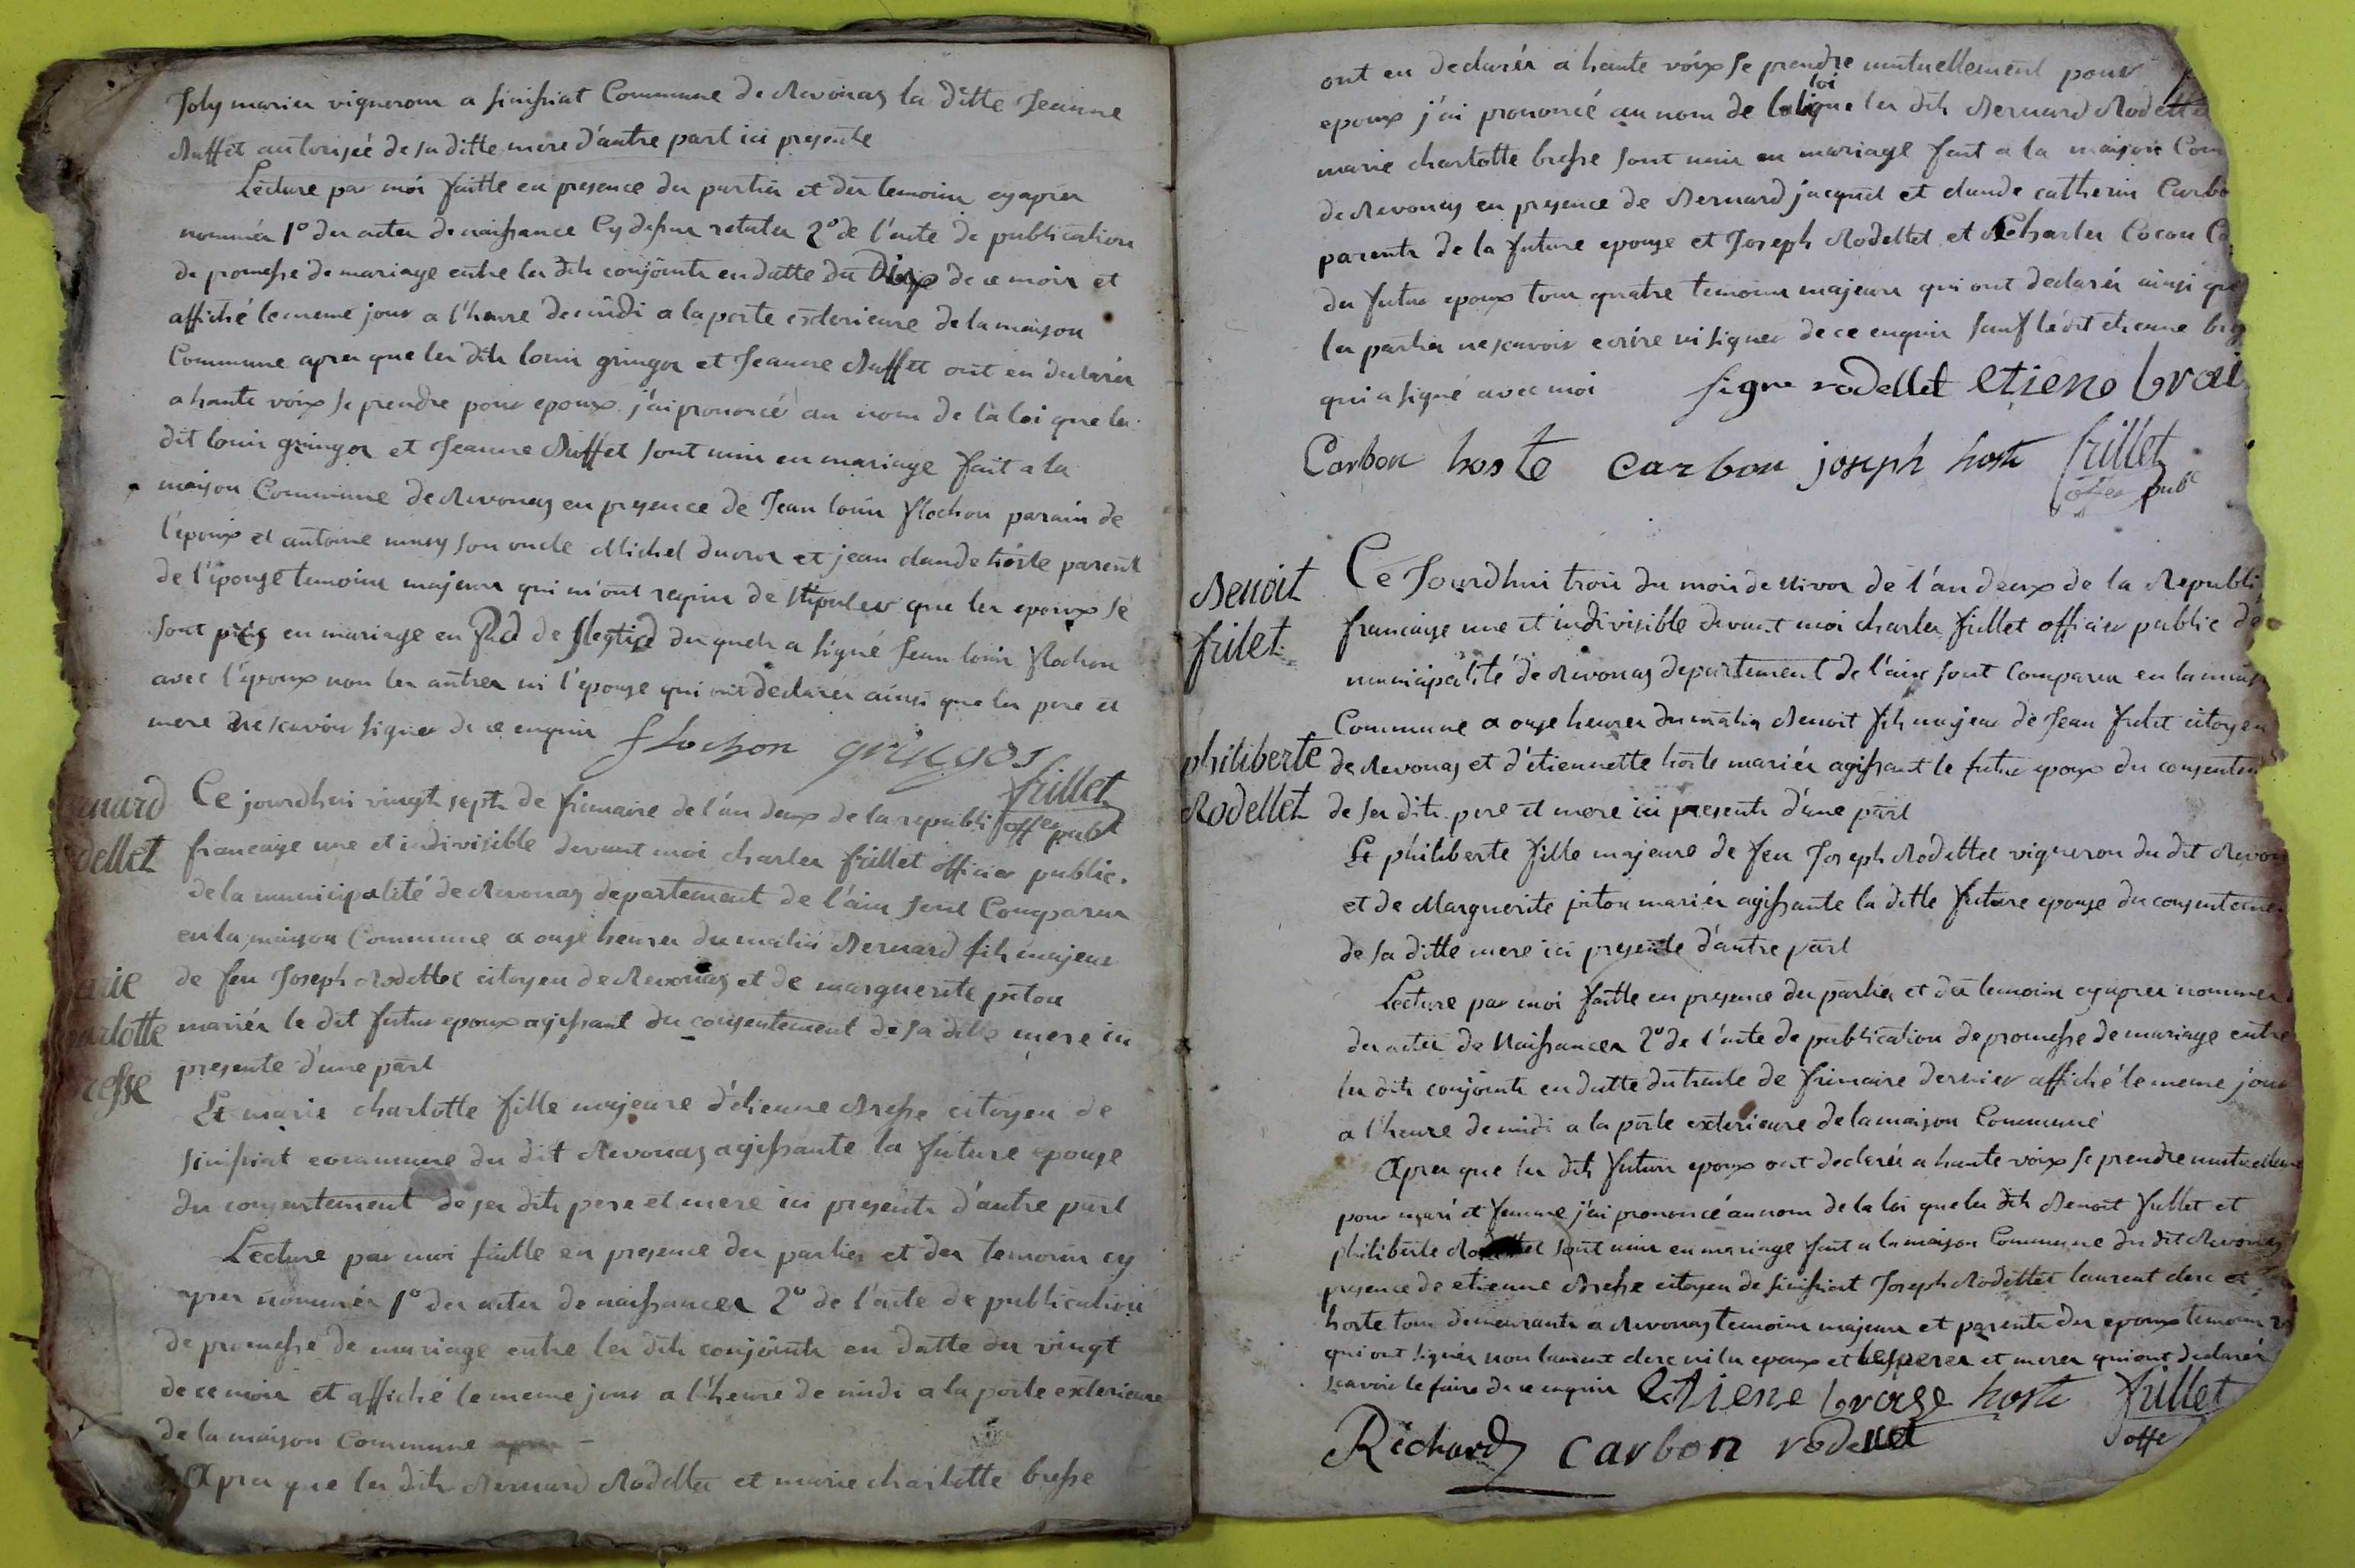 Joly mariés vigneron a simssiat Commune de Revonas la ditte Jeanne
Buffet autorisée de sa ditte mere d'autre part ici presente
Lecture par moi faitte en presence des parties et des temoins cy aprés
nommés 1° des actes de naissance cy dessus relatés 2° de l'acte de publication
de promesse de mariage entre les dits conjoints en datte du Dix de ce mois et
affiché le meme jour a l'heure de midi a la porte exterieure de la maison
Commune apres que les dits louis gringos et Jeanne Buffet ont eu declarés
a haute voix se prendre pour epoux j'ai prononcé au nom de la loi que les
dit louis gringos et Jeanne Buffet sont unis en mariage fait a la
maison Commune de Revonas en presence de Jean louis flochon parain de
l'epoux et antoine musy son oncle Michel ducros et jean claude hoste parents
de l'epouse temoins majeurs qui m'ont requis de stipuler que les epoux se
sont pris en mariage en du quels a signé Jean louis flochon
avec l'epoux non les autres ni l'epouse qui ont declarés ainsi que les pere et
mere ne scavoir signer de ce enquis flochon gringos
frillet
offer publ
enard
dellet
arie
arlotte
resse
Ce jourdhui vingt sept de frimaire de l'an deux de la republi
francaise une et indivisible devant moi charles frillet officier public.
de la municipalité de Revonas departement de l'ain sont Comparus
en la maison Commune a onze heures du matin Bernard fils majeur
de feu Joseph Rodettet citoyen de Revonas et de marguerite piton
mariés le dit futur epoux agissant du consentement de sa ditte mere ici
presente d'une part
Et marie charlotte fille majeure d'etienne Bresse citoyen de
simssiat commune du dit Revonas agissante la future epouse
du consentement de ses dits pere et mere ici presents d'autre part
Lecture par moi faitte en presence des parties et des temoins cy
apres nommés 1° des actes de naissances 2° de l'acte de publication
de promesse de mariage entre les dits conjoints en datte du vingt
de ce mois et affiché le meme jour a l'heure de midi a la porte exterieure
de la maison Commune
Apres que les dits Bernard Rodettet et marie charlotte bresse
ont eu declarés a haute voix se prendre mutuellement pour
loi
epoux j'ai prononcé au nom de la que les dits Bernard Rodettet
marie charlotte bresse sont unis en mariage fait a la maison Com
de Revonas en presence de Bernard jacquet et claude catherin Carbo
parents de la future epouse et Joseph Rodettet et Charles Cocon
du futur epoux tous quatre temoins majeurs qui ont declarés ainsi que
les parties ne scavoir ecrire ni signer de ce enquis sauf le dit etienne
qui a signé avec moi signe rodellet etiene
Carbon hoste carbon joseph hoste frillet
offer pub
Benoit
frilet
philiberte
Rodellet
Ce Jourdhui trois du mois de Nivos de l'an deux de la Republi
francaise une et indivisible devant moi charles frillet officier public de
municipalité de Revonas departement de l'ain sont Comparus en la mais
Commune a onze heures du matin Benoit fils majeur de Jean frilet citoyen
de Revonas et d'etiennette hoste mariés agissant le futur epoux du consentem
de ses dits pere et mere ici presents d'une part
Et philiberte fille majeure de feu Joseph Rodettet vigneron du dit Revon
et de Marguerite piton mariés agissante la ditte future epouse du consenteme
de sa ditte mere ici presente d'autre part
Lecture par moi faitte en presence des parties et des temoins cy apres nommés
des actes de Naissances 2° de l'acte de publication de promesse de mariage entre
les dits conjoints en datte du trente de frimaire dernier affiché le meme jour
a l'heure de midi a la porte exterieure de la maison Commune
Apres que les dits futurs epoux ont declarés a haute voix se prendre mutuelleme
pour mari et femme j'ai prononcé au nom de la loi que les dits Benoit frillet et
philiberte sont unis en mariage fait a la maison Commune du dit Revonas
presence de etienne Bresse citoyen de simssiat Joseph Rodettet laurent clerc et
hoste tous demeurants a Revonas temoins majeurs et parents des epoux temoins
qui ont signés non laurent clerc ni les epoux et les peres et meres qui ont declarés
scavoir le faire de ce enquis Etiene brase hoste frillet
offe
Richard carbon rodellet